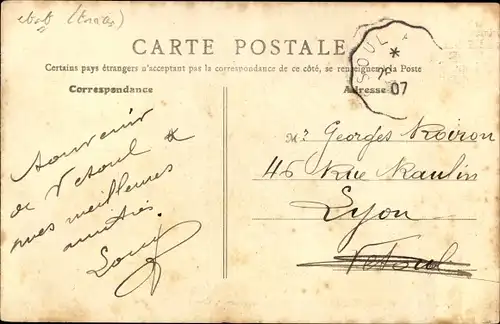 CARTE POSTALE
Certains pays étrangers n'acceptant pas la correspondance de ce côté, se renseigner à la Poste
Correspondance
Adresse
SOUL
*
07
Souvenir
de Vesoul &
mes meilleures
amitiés
Mr Georges Noiron
46 Rue Raulin
Lyon
Vesoul